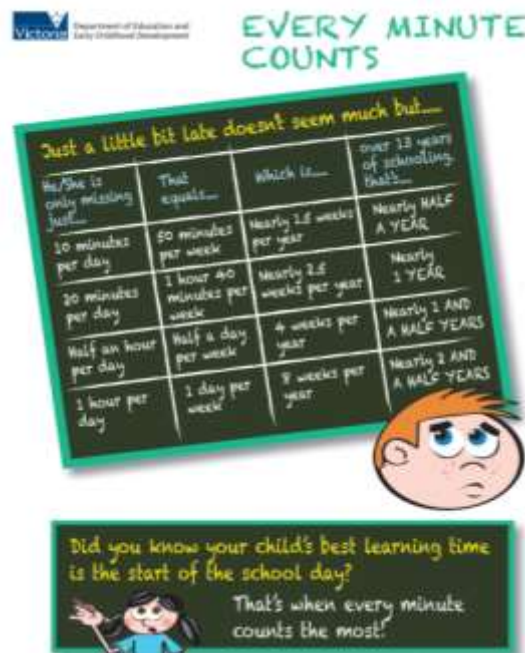 Victoria
Department of Education and
Early Childhood Development
EVERY MINUTE
COUNTS
Just a little bit late doesn't seem much but....
He/She is
only missing
just....
That
equals....
Which is....
over 13 years
of schooling,
that's....
10 minutes
per day
50 minutes
per week
Nearly 1.5 weeks
per year
Nearly HALF
A YEAR
20 minutes
per day
1 hour 40
minutes per
week
Nearly 2.5
weeks per year
Nearly
1 YEAR
Half an hour
per day
Half a day
per week
4 weeks per
year
Nearly 1 AND
A HALF YEARS
1 hour per
day
1 day per
week
8 weeks per
year
Nearly 2 AND
A HALF YEARS
Did you know your child's best learning time
is the start of the school day?
That's when every minute
counts the most!